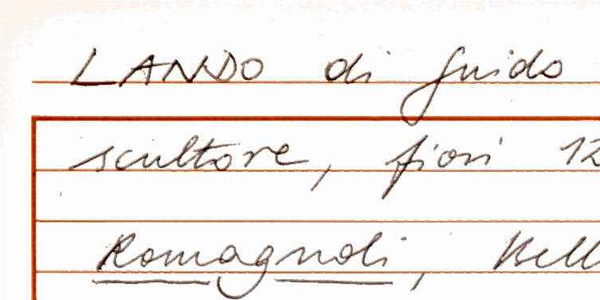 LANDO di Guido
scultore, fiorì 12
Romagnoli, Bell